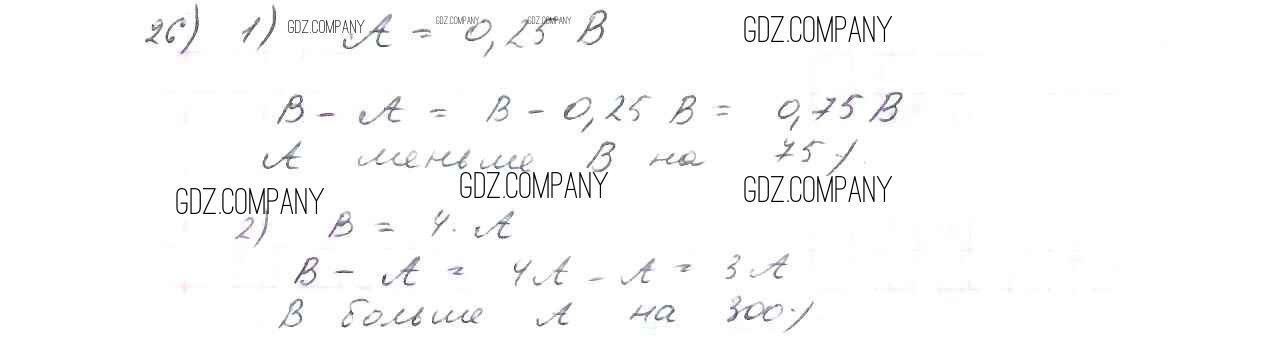 26) 1) GDZ.COMPANY A = 0,25 B GDZ.COMPANY GDZ.COMPANY GDZ.COMPANY
B - A = B - 0,25 B = 0,75 B
A меньше B на 75%
GDZ.COMPANY GDZ.COMPANY GDZ.COMPANY
2) B = 4 · A
B - A = 4A - A = 3A
B больше A на 300%